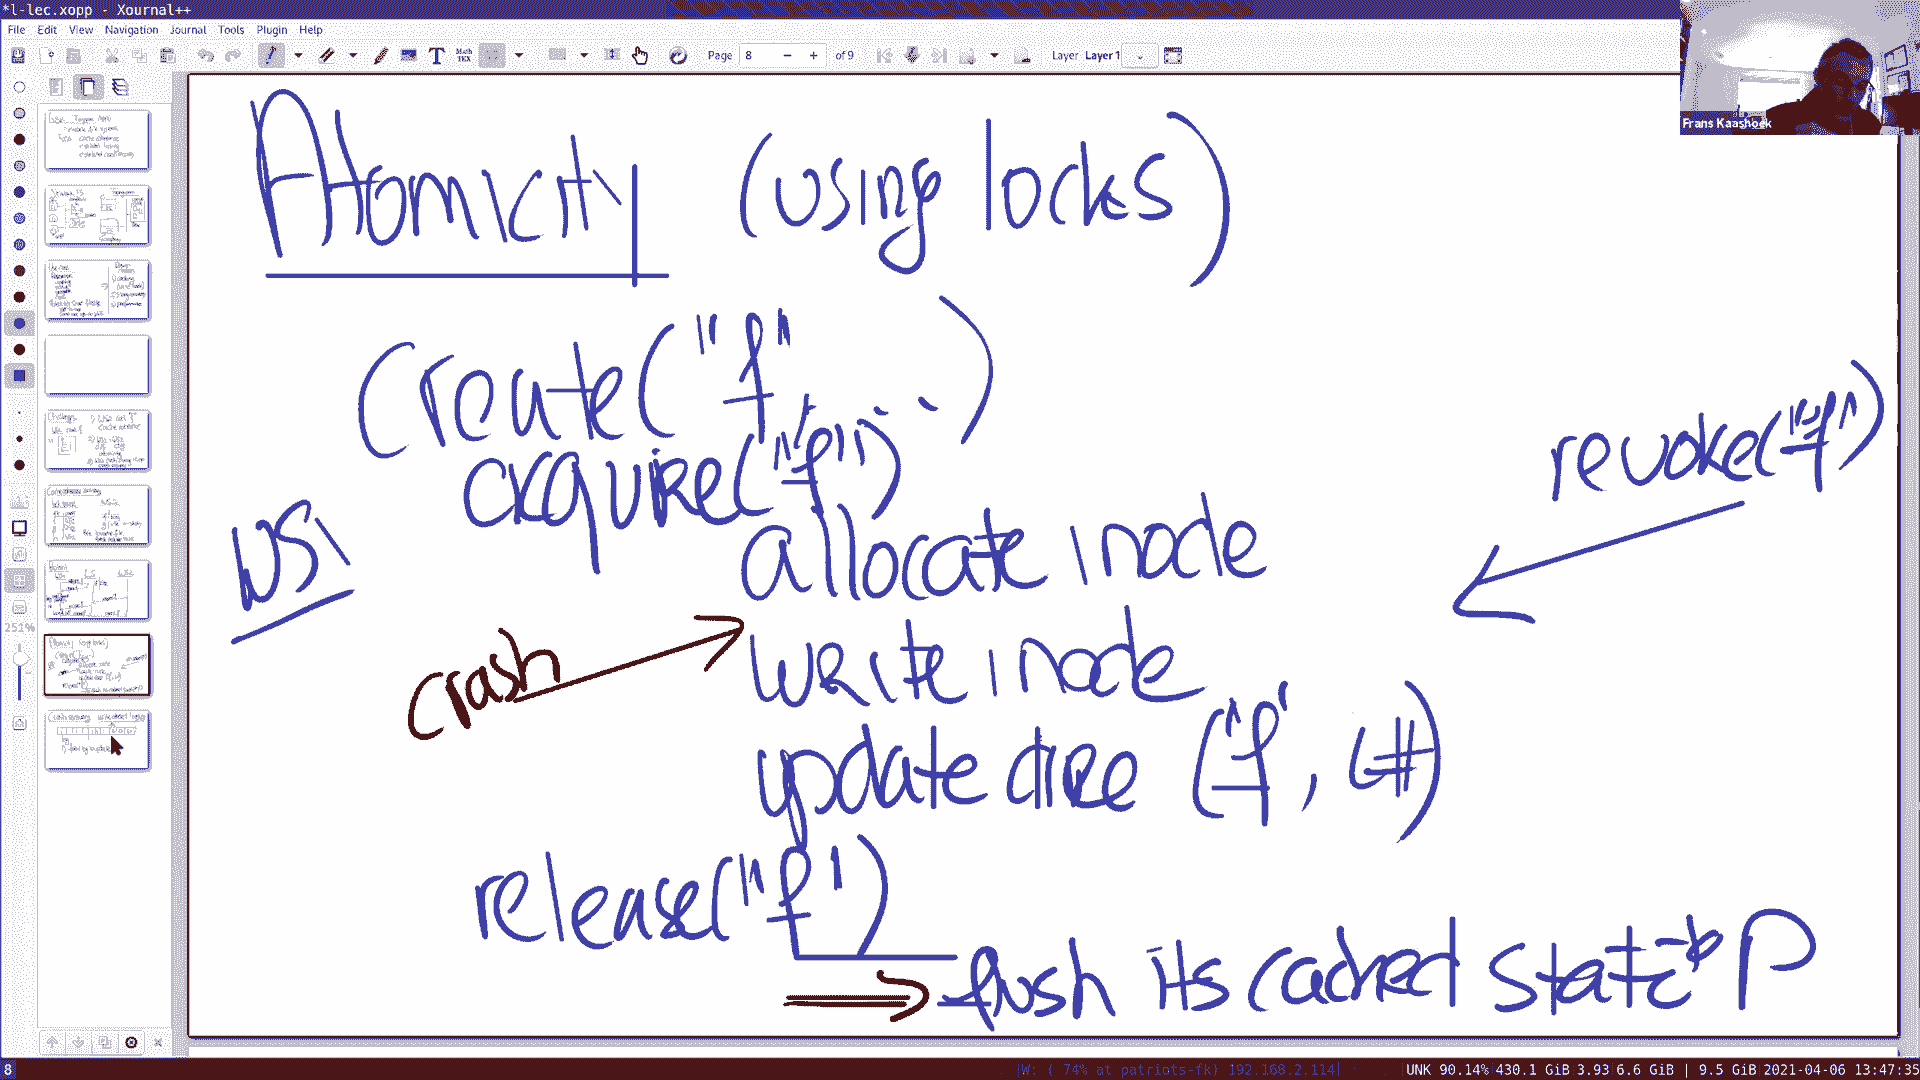 *l-lec.xopp - Xournal++
File Edit View Navigation Journal Tools Plugin Help
Page 8 of 9 Layer Layer 1
Frans Kaashoek
Atomicity (using locks)
create("f", ..)
acquire("f")
revoke("f")
WS1
allocate inode
crash
write inode
update dire ("f", i#)
release("f")
push its cached state → P
251%
8
W: ( 74% at patriots-fk) 192.168.2.114| UNK 90.14% 430.1 GiB 3.93 6.6 GiB | 9.5 GiB 2021-04-06 13:47:35